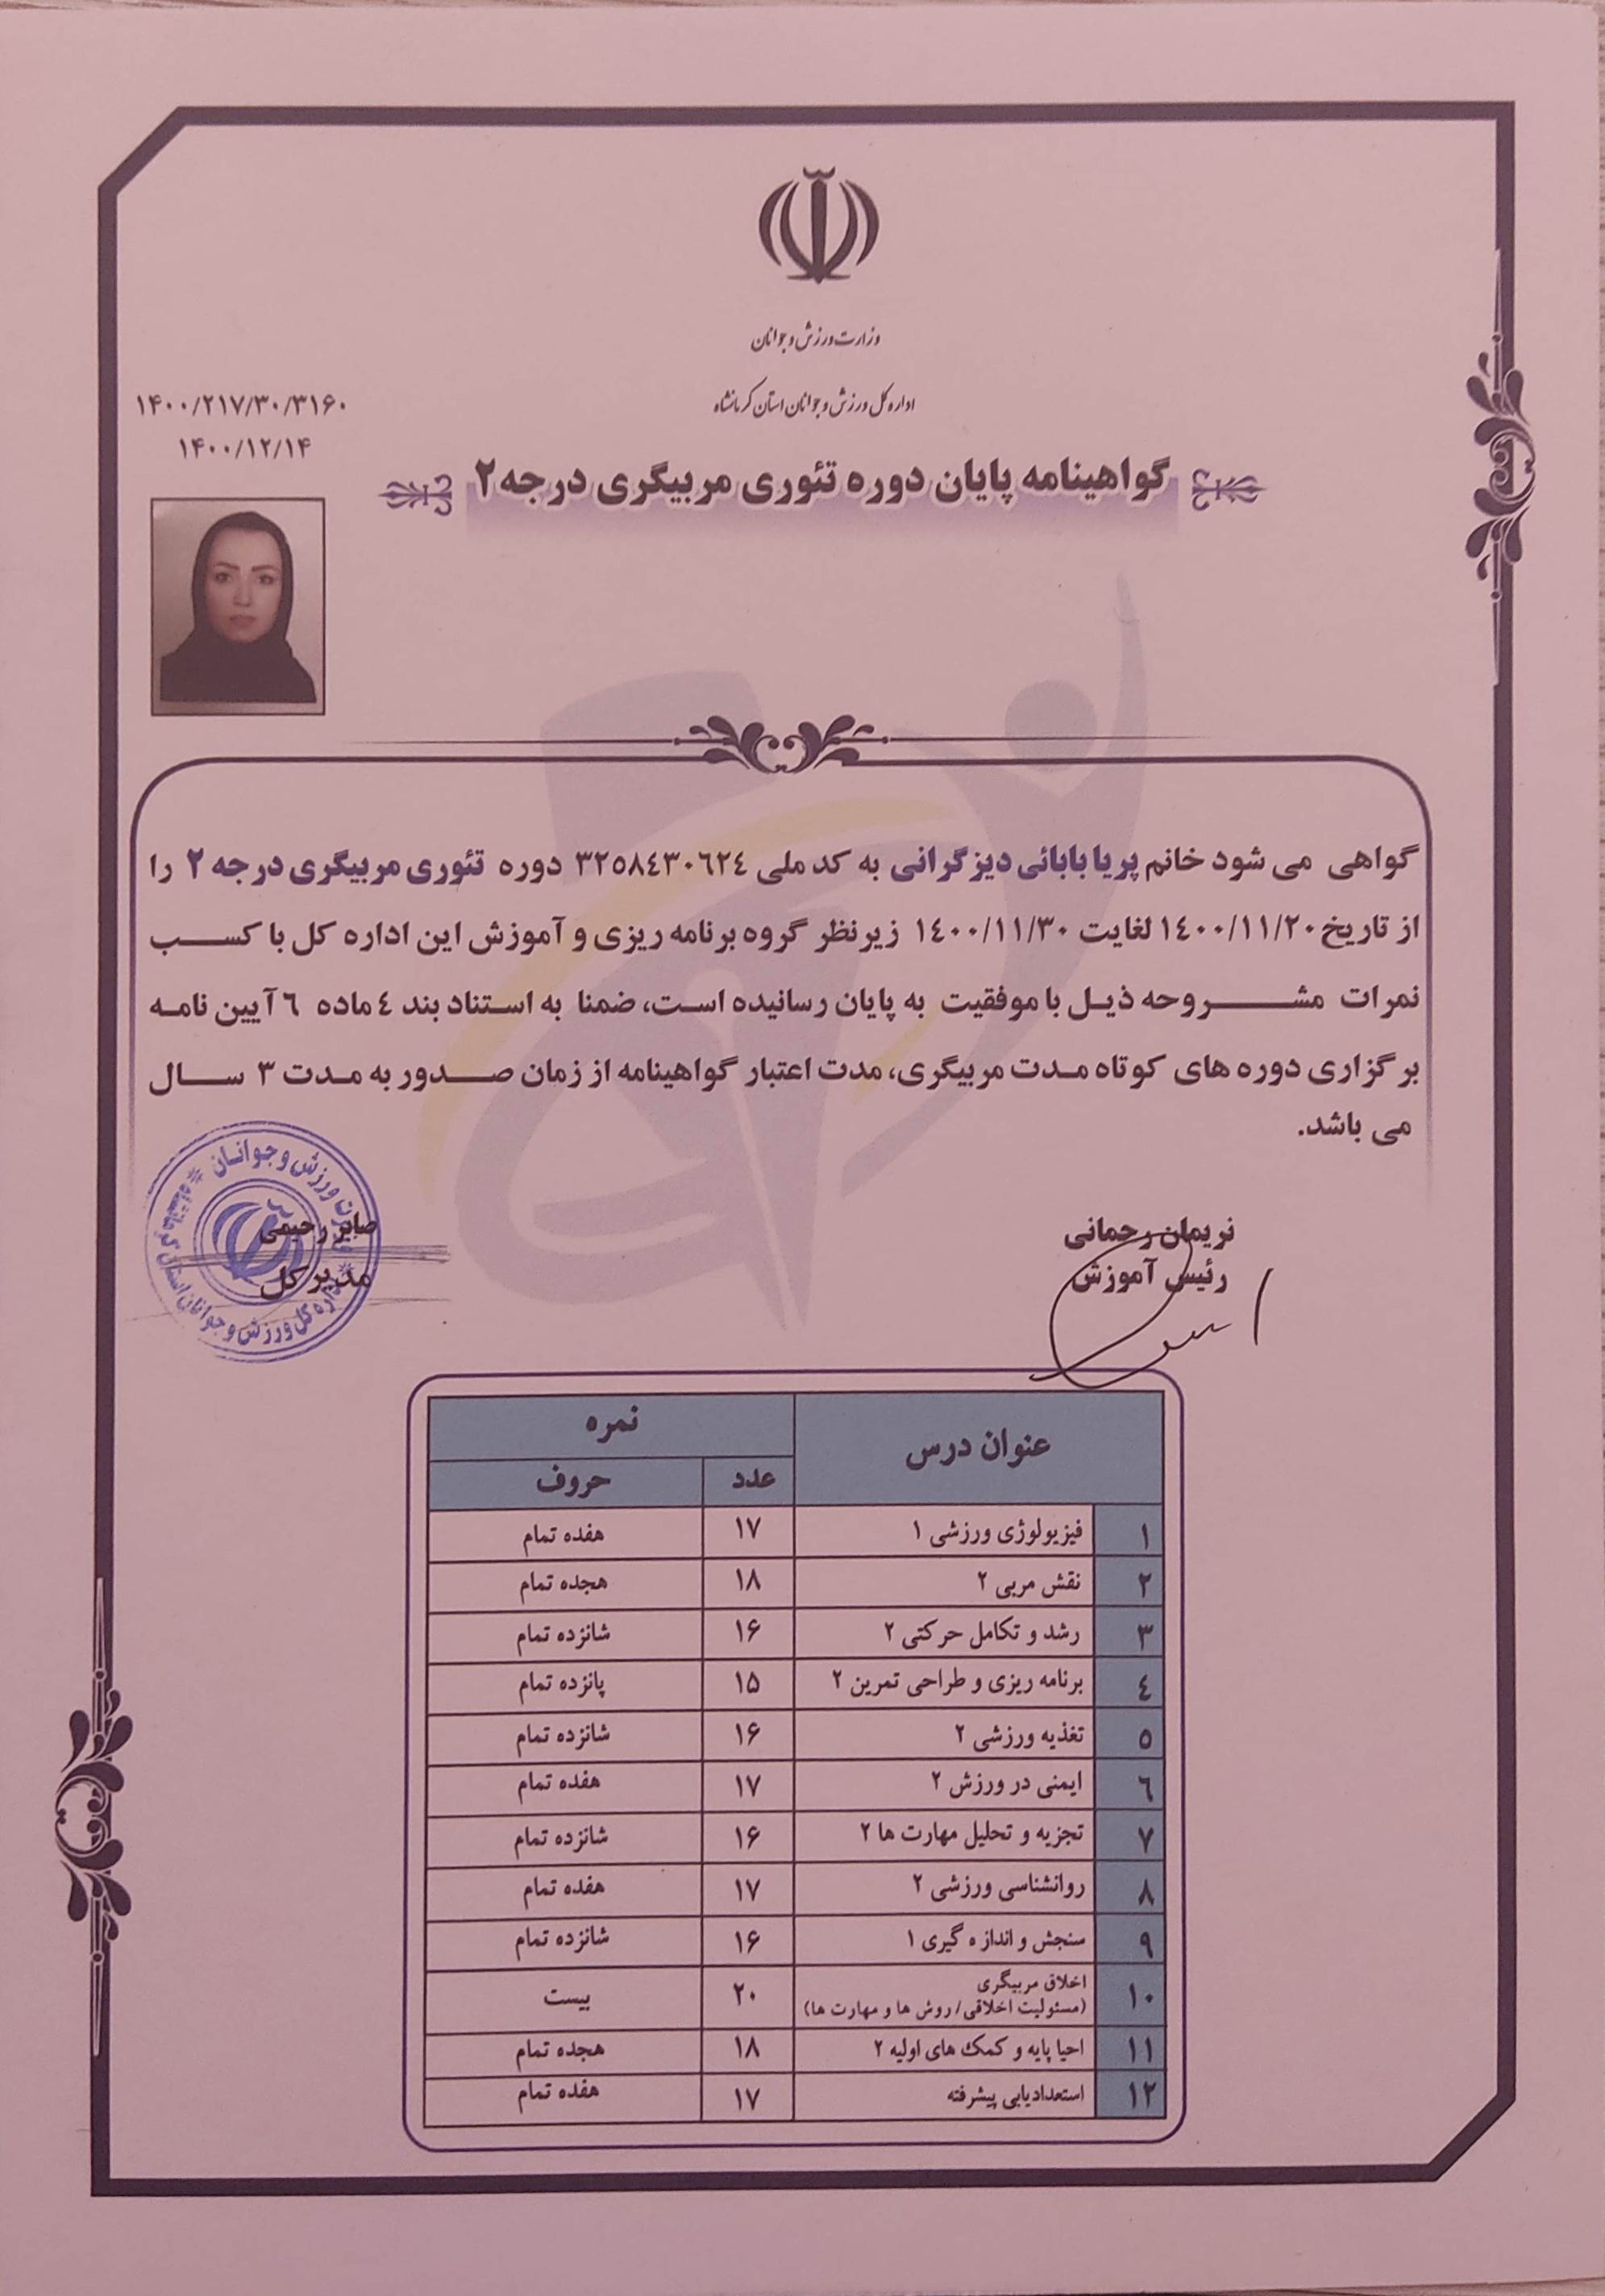 وزارت ورزش و جوانان
اداره کل ورزش و جوانان استان کرمانشاه
۱۴۰۰/۲۱۷/۳۰/۳۱۶۰
۱۴۰۰/۱۲/۱۴
گواهینامه پایان دوره تئوری مربیگری درجه ۲
گواهی می شود خانم پریا بابائی دیزگرانی به کد ملی ۳۲۵۸٤۳۰٦۲٤ دوره تئوری مربیگری درجه ۲ را
از تاریخ ۱٤۰۰/۱۱/۲۰ لغایت ۱٤۰۰/۱۱/۳۰ زیرنظر گروه برنامه ریزی و آموزش این اداره کل با کسب
نمرات مشروحه ذیل با موفقیت به پایان رسانیده است، ضمنا به استناد بند ٤ ماده ٦ آیین نامه
برگزاری دوره های کوتاه مدت مربیگری، مدت اعتبار گواهینامه از زمان صدور به مدت ۳ سال
می باشد.
نریمان رحمانی
رئیس آموزش
صابر رحیمی
مدیر کل
وزارت ورزش و جوانان
اداره کل ورزش و جوانان استان کرمانشاه
عنوان درس نمره
عدد حروف
۱ فیزیولوژی ورزشی ۱ ۱۷ هفده تمام
۲ نقش مربی ۲ ۱۸ هجده تمام
۳ رشد و تکامل حرکتی ۲ ۱۶ شانزده تمام
٤ برنامه ریزی و طراحی تمرین ۲ ۱۵ پانزده تمام
۵ تغذیه ورزشی ۲ ۱۶ شانزده تمام
٦ ایمنی در ورزش ۲ ۱۷ هفده تمام
۷ تجزیه و تحلیل مهارت ها ۲ ۱۶ شانزده تمام
۸ روانشناسی ورزشی ۲ ۱۷ هفده تمام
۹ سنجش و اندازه گیری ۱ ۱۶ شانزده تمام
۱۰ اخلاق مربیگری
(مسئولیت اخلاقی/روش ها و مهارت ها) ۲۰ بیست
۱۱ احیا پایه و کمک های اولیه ۲ ۱۸ هجده تمام
۱۲ استعدادیابی پیشرفته ۱۷ هفده تمام